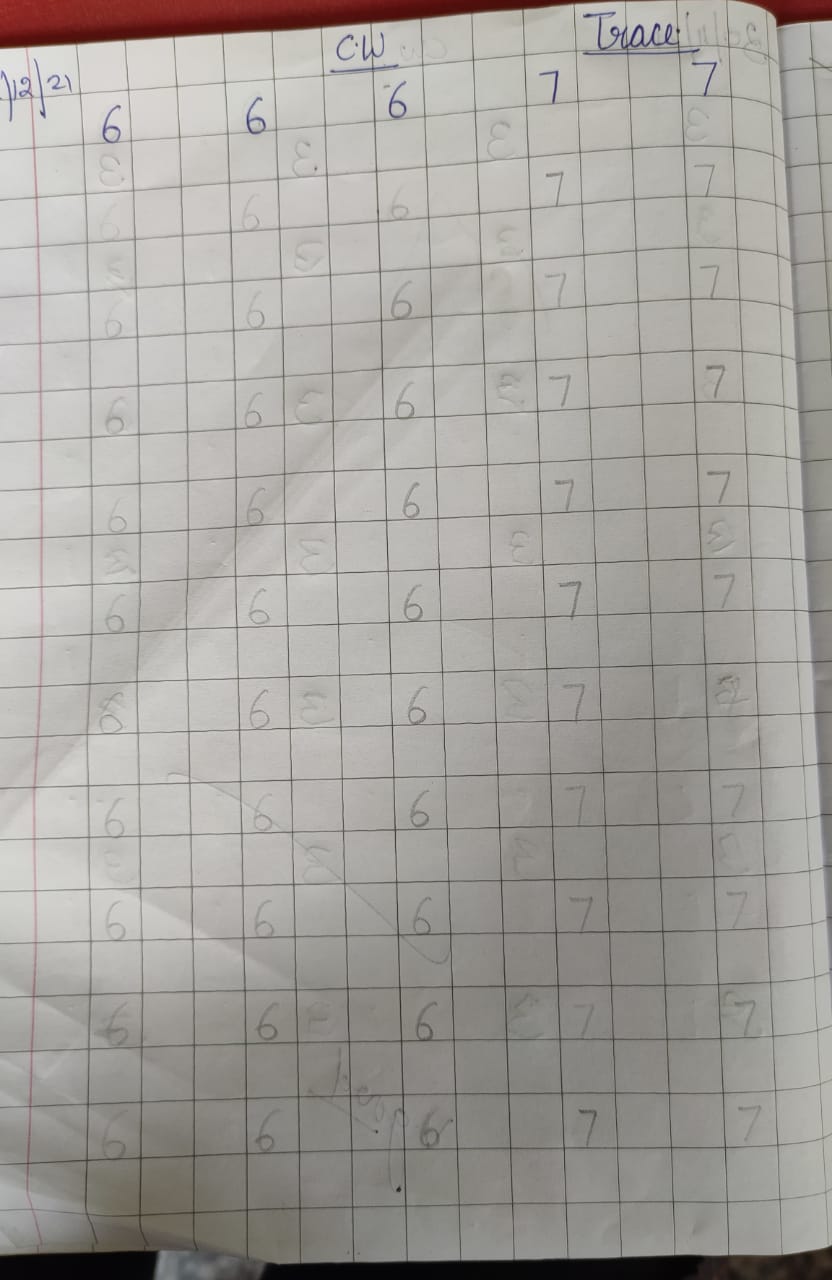 C.W Trace
/12/21
6 6 6 7 7
6 6 6 7 7
6 6 6 7 7
6 6 6 7 7
6 6 6 7 7
6 6 6 7 7
6 6 6 7 7
6 6 6 7 7
6 6 6 7 7
6 6 6 7 7
6 6 6 7 7